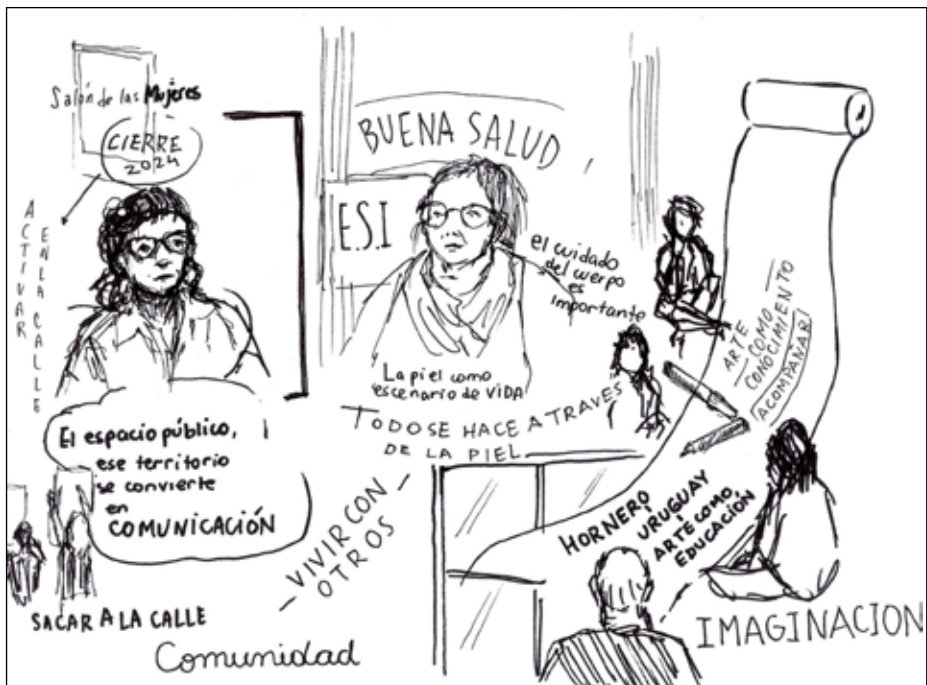 Salón de las Mujeres
CIERRE
2024
ACTIVAR
EN LA CALLE
El espacio público,
ese territorio
se convierte
en
COMUNICACIÓN
SACAR A LA CALLE
Comunidad
BUENA SALUD
E.S.I
el cuidado
del cuerpo
es
importante
La piel como
escenario de VIDA
TODO SE HACE A TRAVES
DE LA PIEL
VIVIR CON
OTROS
ARTE
COMO
CONOCIMIENTO
ACOMPAÑAR
HORNERO
URUGUAY
ARTE COMO
EDUCACIÓN
IMAGINACION